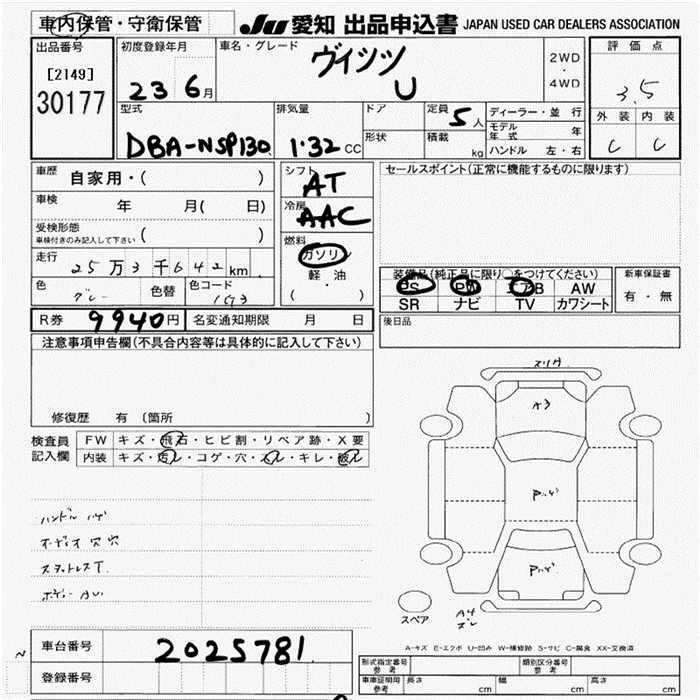 車内保管・守衛保管
JU 愛知 出品申込書 JAPAN USED CAR DEALERS ASSOCIATION
出品番号
[2149]
30177
初度登録年月
23 6月
車名・グレード
ヴィッツ
U
2WD
・
4WD
評価点
3.5
外装 内装
C C
型式
DBA-NSP130
排気量
1.32 CC
ドア
形状
定員 5人
積載 kg
ディーラー・並行
モデル年式 年
ハンドル 左・右
車歴 自家用・( )
車検 年 月( 日)
受検形態
車検付きのみ記入して下さい ( )
走行 25万3千642km
色 グレー 色替 色コード 1G3
シフト
AT
冷房
AAC
燃料
ガソリン
軽油
( ・ )
セールスポイント(正常に機能するものに限ります)
装備品(純正品に限り○をつけてください)
PS PW エアB AW
SR ナビ TV カワシート
新車保証書
有・無
R券 9940円 名変通知期限 月 日
後日品
注意事項申告欄(不具合内容等は具体的に記入して下さい)
修復歴 有 (箇所
検査員
記入欄
FW キズ・飛石・ヒビ割・リペア跡・X要
内装 キズ・汚レ・コゲ・穴・スレ・キレ・破レ
ハンドル ハゲ
オーディオ穴 穴
スタットレスT.
ボディー AU
スリケ
A3
Pハゲ
Pハゲ
スペア
A4
スレ
A-キズ E-エクボ U-凹み W-補修跡 S-サビ C-腐食 XX-交換済
車台番号 2025781
登録番号
形式指定番号
参考
類別区分番号
参考
車庫証明用
参考
長さ cm 幅 cm 高さ cm